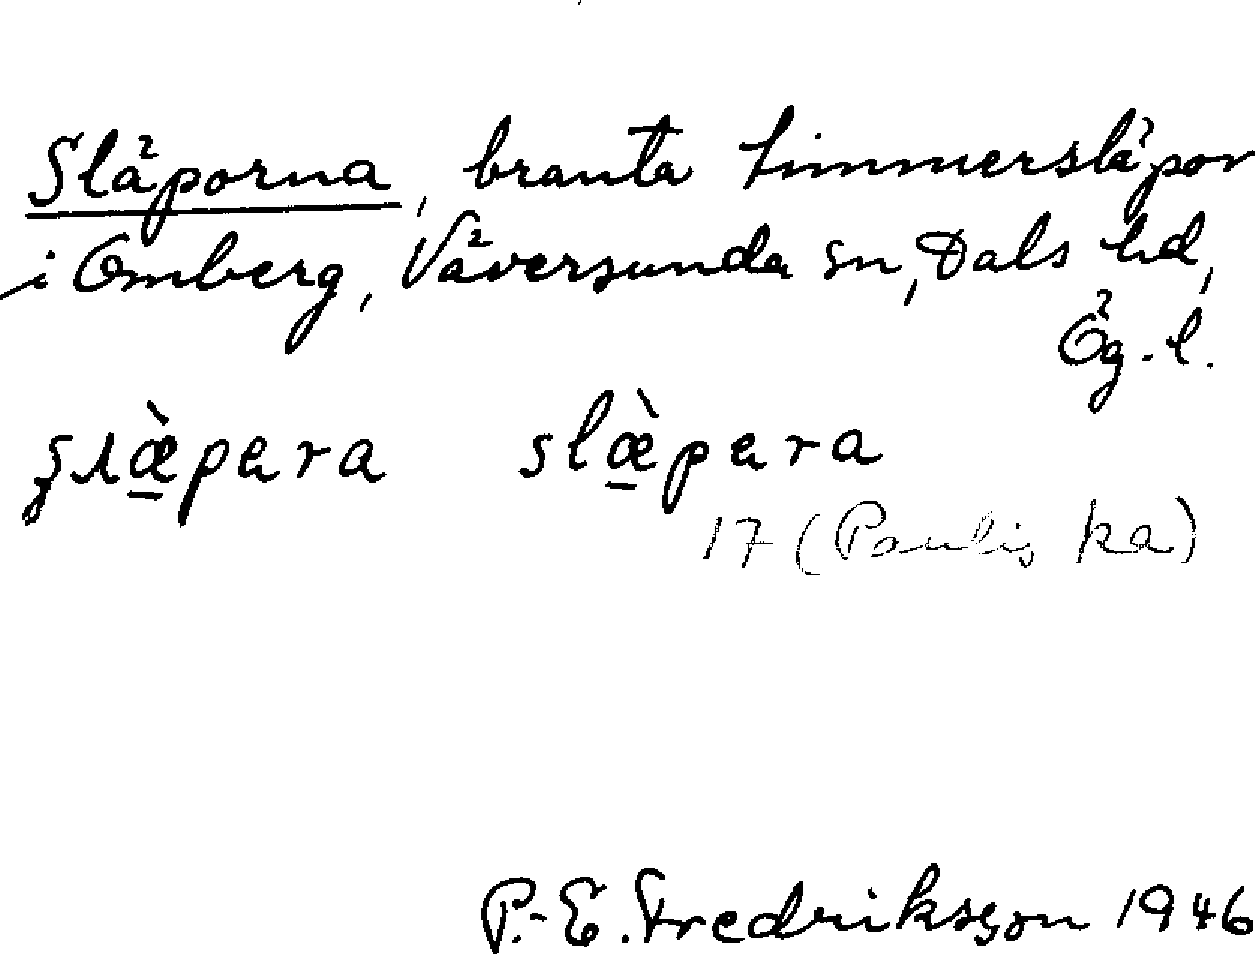 Släporna, branta timmersläpor
i Omberg, Väversunda sn, Dals hd,
Ög.l.
slæ̀pera slæ̀pera
17 (Paulis ka)
P.-E. Fredriksson 1946